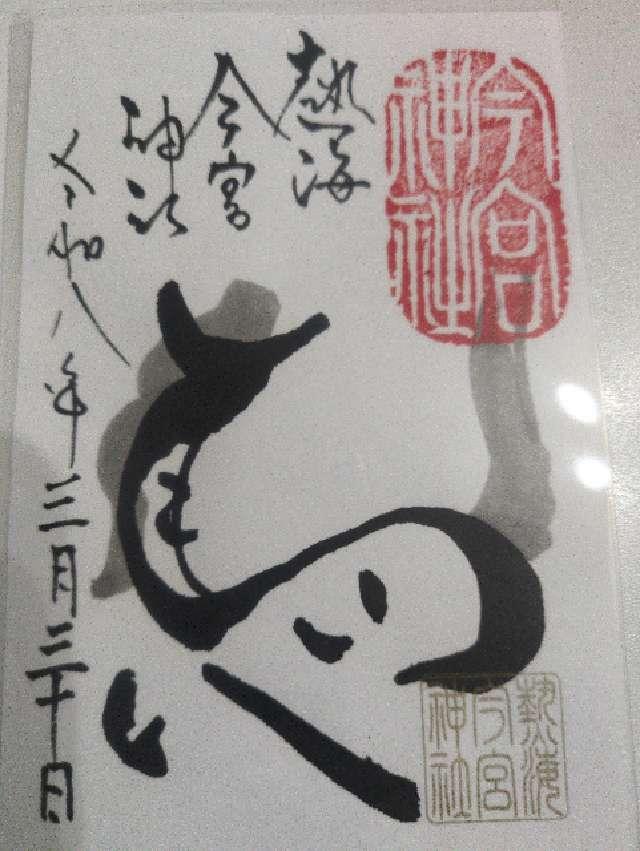 今宮
神社
熱海
今宮
神社
令和八年三月三十日
熱海
今宮
神社